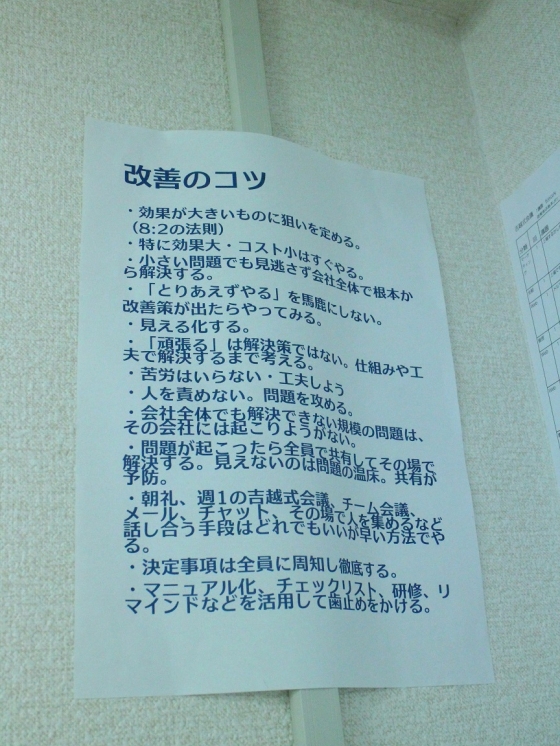 改善のコツ
・効果が大きいものに狙いを定める。
（8:2の法則）
・特に効果大・コスト小はすぐやる。
・小さい問題でも見逃さず会社全体で根本か
ら解決する。
・「とりあえずやる」を馬鹿にしない。
改善策が出たらやってみる。
・見える化する。
・「頑張る」は解決策ではない。仕組みや工
夫で解決するまで考える。
・苦労はいらない・工夫しよう
・人を責めない。問題を攻める。
・会社全体でも解決できない規模の問題は、
その会社には起こりようがない。
・問題が起こったら全員で共有してその場で
解決する。見えないのは問題の温床。共有が
予防。
・朝礼、週1の吉越式会議、チーム会議、
メール、チャット、その場で人を集めるなど
話し合う手段はどれでもいいが早い方法でや
る。
・決定事項は全員に周知し徹底する。
・マニュアル化、チェックリスト、研修、リ
マインドなどを活用して歯止めをかける。